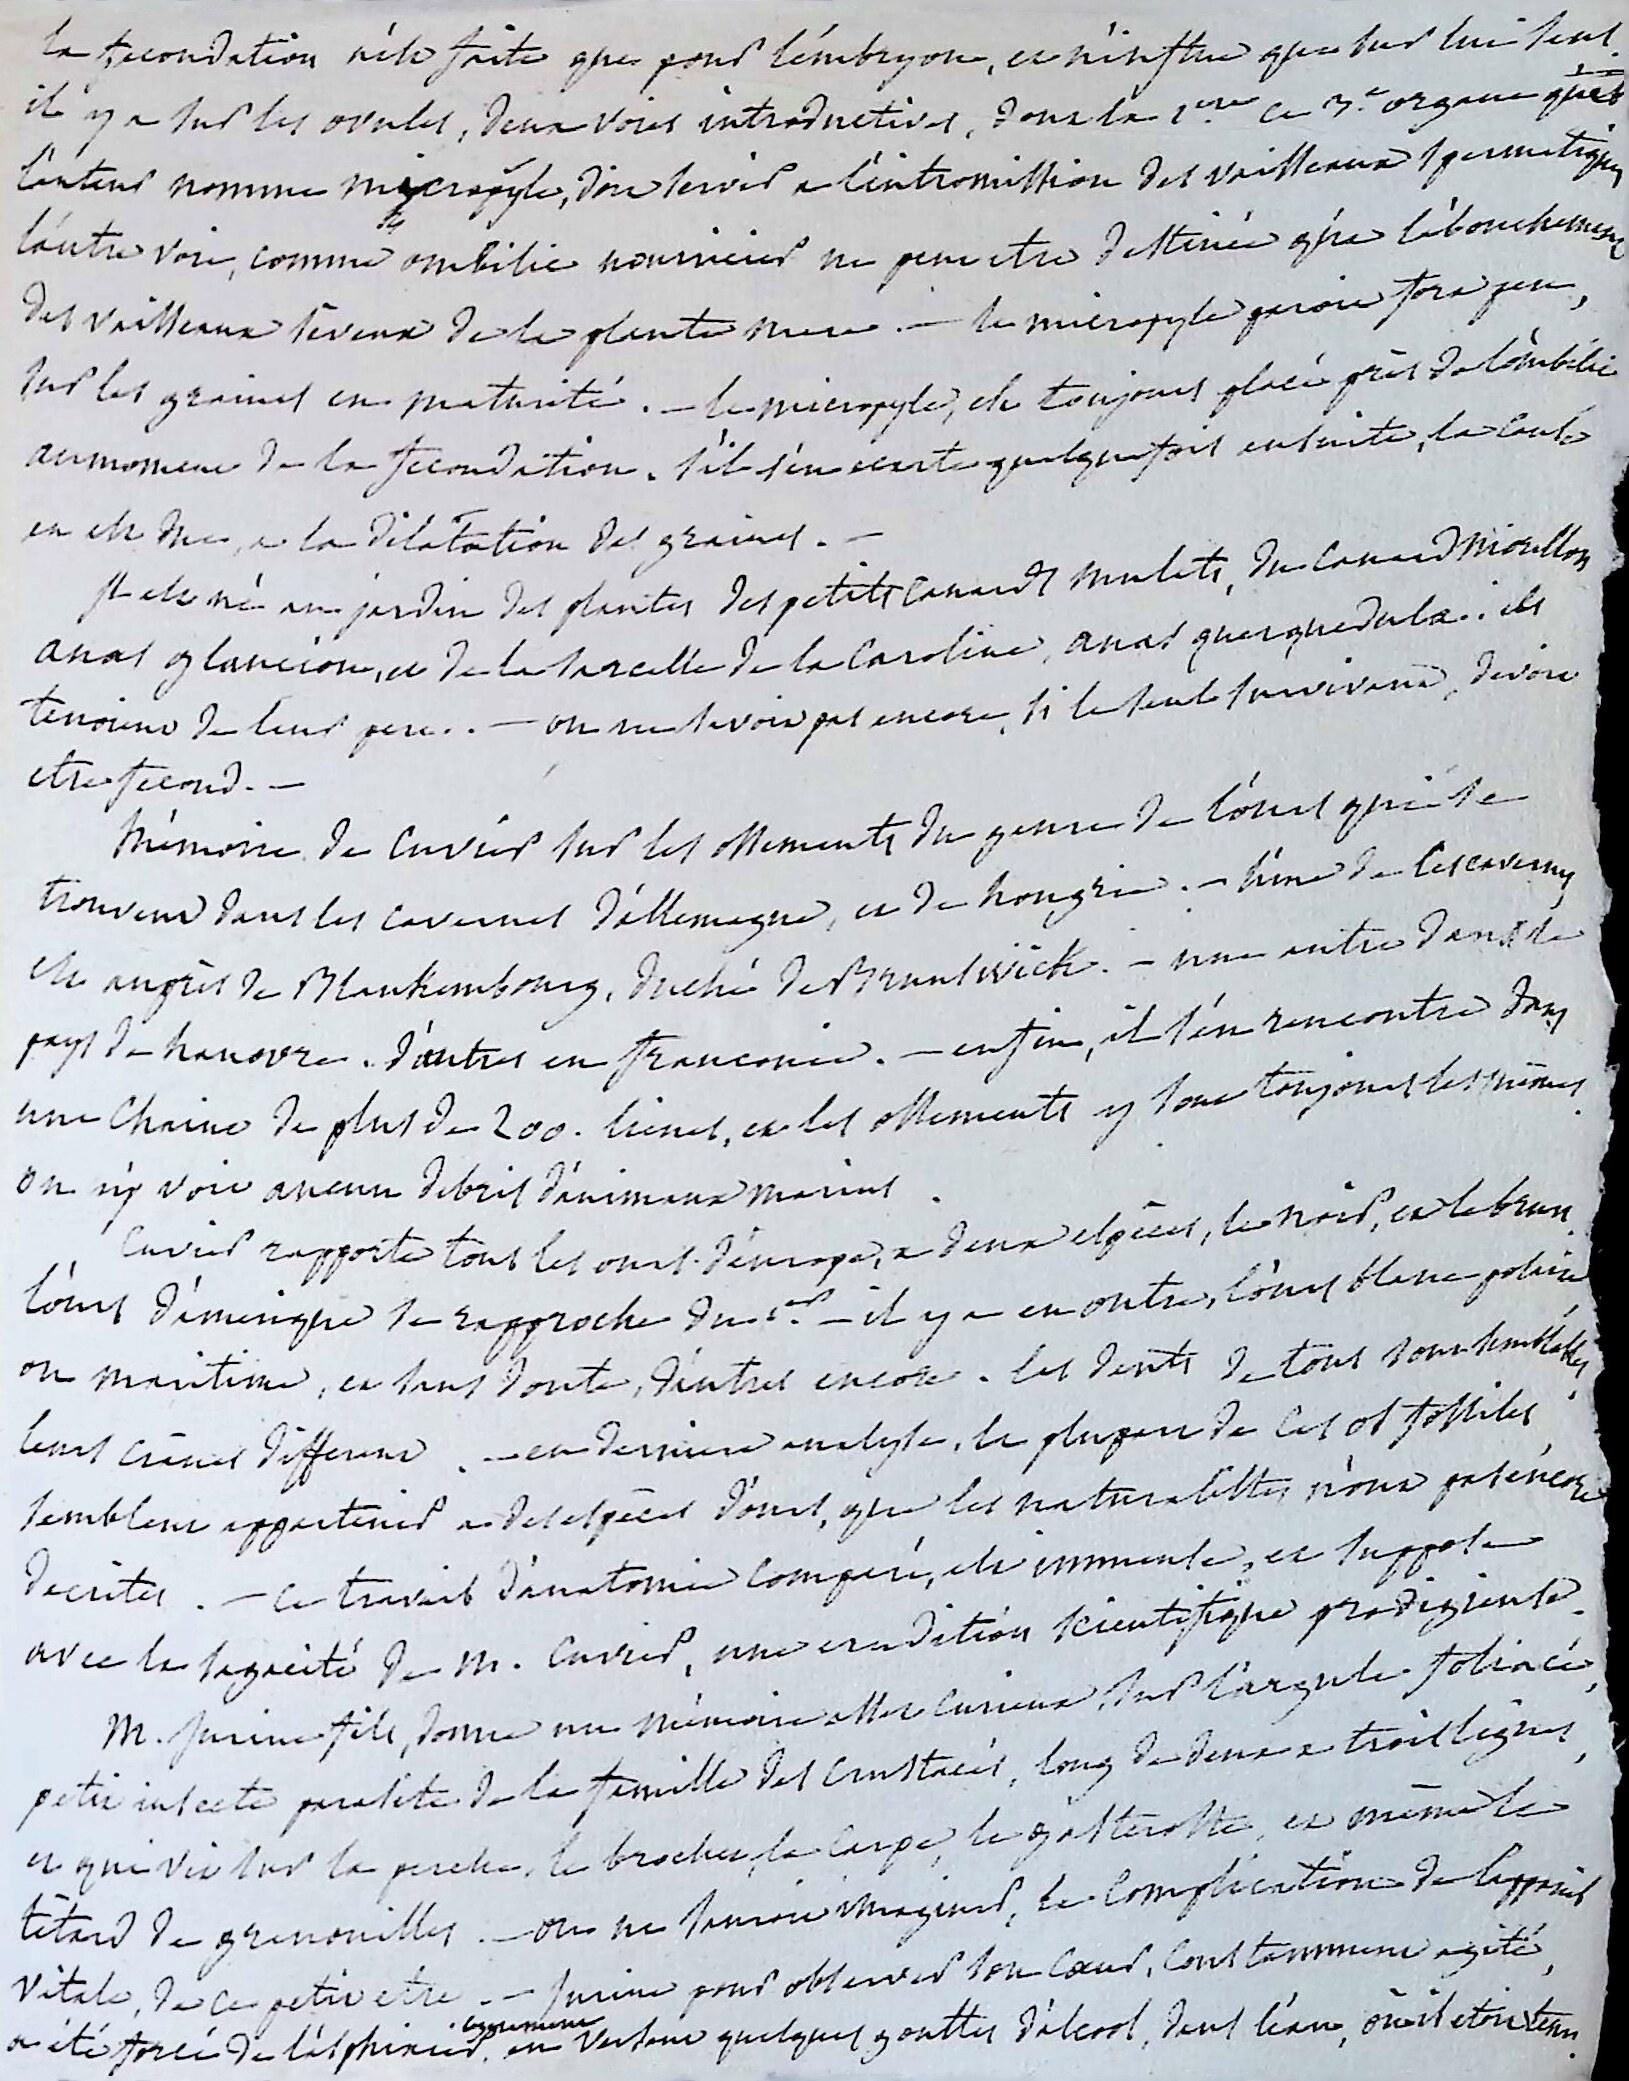 la fecondation n'est faite que pour l'émbryon, et n'influe que sur lui seul.
il y a sur les ovules, deux voies introductives, dont la 1.ere ce 3.e organe que
l'auteur nomme micropyle, doit servir a l'intromission des vaisseaux spermatiques
l'autre voie, comme ombilic nourricier ne peut etre destinée qu'a l'abouchement
des vaisseaux séveux de la plante mere. — le micropyle paroit fort peu,
sur les graines en maturité. — le micropyle, est toujours placé près de l'ombilic
au moment de la fecondation. s'il s'en ecarte quelquefois ensuite, la cause
en est due, a la dilatation des graines. —
Il est né au jardin des plantes des petits canards mulets, du canard morillon
anas glaucion, et de la sarcelle de la Caroline, anas querquedula. ils
tenoient de leur pere. — on ne savoit pas encore, si le seul survivant, devoit
etre fecond. —
Mémoire de Cuvier sur les ossements du genre de l'ours qui se
trouvent dans les cavernes d'allemagne, et de hongrie. — l'une de ces cavernes
est auprès de Blankembourg, duché de Brunswick. — une autre dans le
pays de hanovre. d'autres en franconie. — enfin, il s'en rencontre dans
une chaine de plus de 200. lieues, et les ossements y sont toujours les mêmes.
on n'y voit aucun debris d'animaux marins.
Cuvier rapporte tous les ours d'éurope, a deux espèces, le noir, et le brun.
l'ours d'amerique se rapproche du 1.er — il y a en outre, l'ours blanc polaire
ou maritime, et sans doute, d'autres encore. les dents de tous sont semblables,
leurs crânes different. — en derniere analyse, la plupart de ces os fossiles
semblent appartenir a des espèces d'ours, que les naturalistes n'ont pas encore
decrites. — ce travail d'anatomie comparée, est immense, et suppose
avec la sagacité de M. Cuvier, une erudition scientifique prodigieuse.
M. Jurine fils, donne un mémoire assez curieux, sur l'argule foliacé,
petit insecte parasite de la famille des crustacés, long de deux a trois lignes,
et qui vit sur la perche, le brochet, la carpe, le gasterosté, et même le
têtard de grenouilles. — on ne sauroit imaginer, la complication de l'appareil
vitale, de ce petit etre. — Jurine pour observer son cœur, constamment agité,
a été forcé de l'asphixier, en versant quelques gouttes d'alcool, dans l'eau, où il etoit tenu.